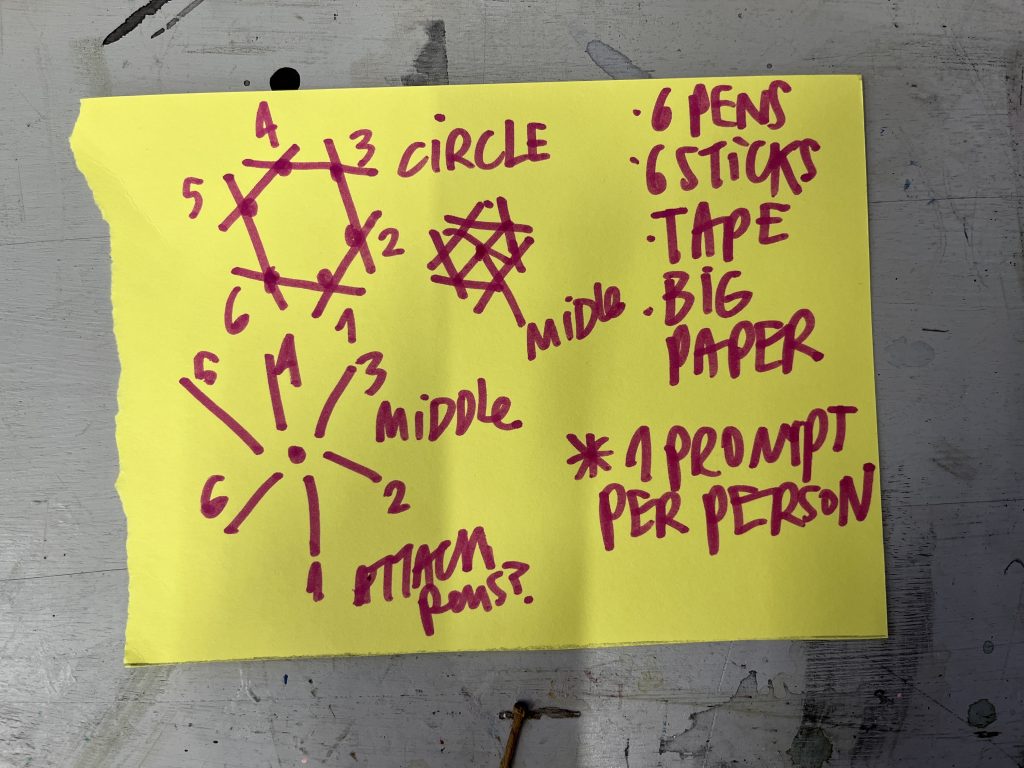 4
3
CIRCLE
5
2
6
1
MIDLE
5
4
3
MIDDLE
6
2
1
ATTACH
PENS?
· 6 PENS
· 6 STICKS
· TAPE
· BIG
PAPER
* 1 PROMPT
PER PERSON